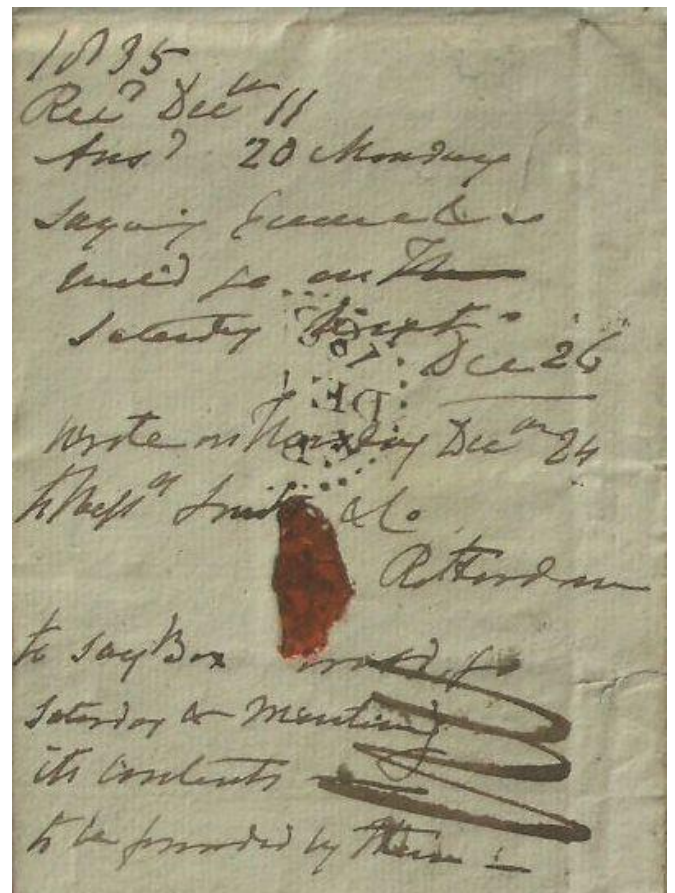 1835
Rec^d Dec^m 11
Ans^d 20 Monday
saying
would go on The
Saturday Next
Dec 26
wrote on Thursday Dec^m 24
to Mess^rs Smith & Co
Rotterdam
to say Box would go
Saturday & Mention^g
its contents
to be forwarded by Them